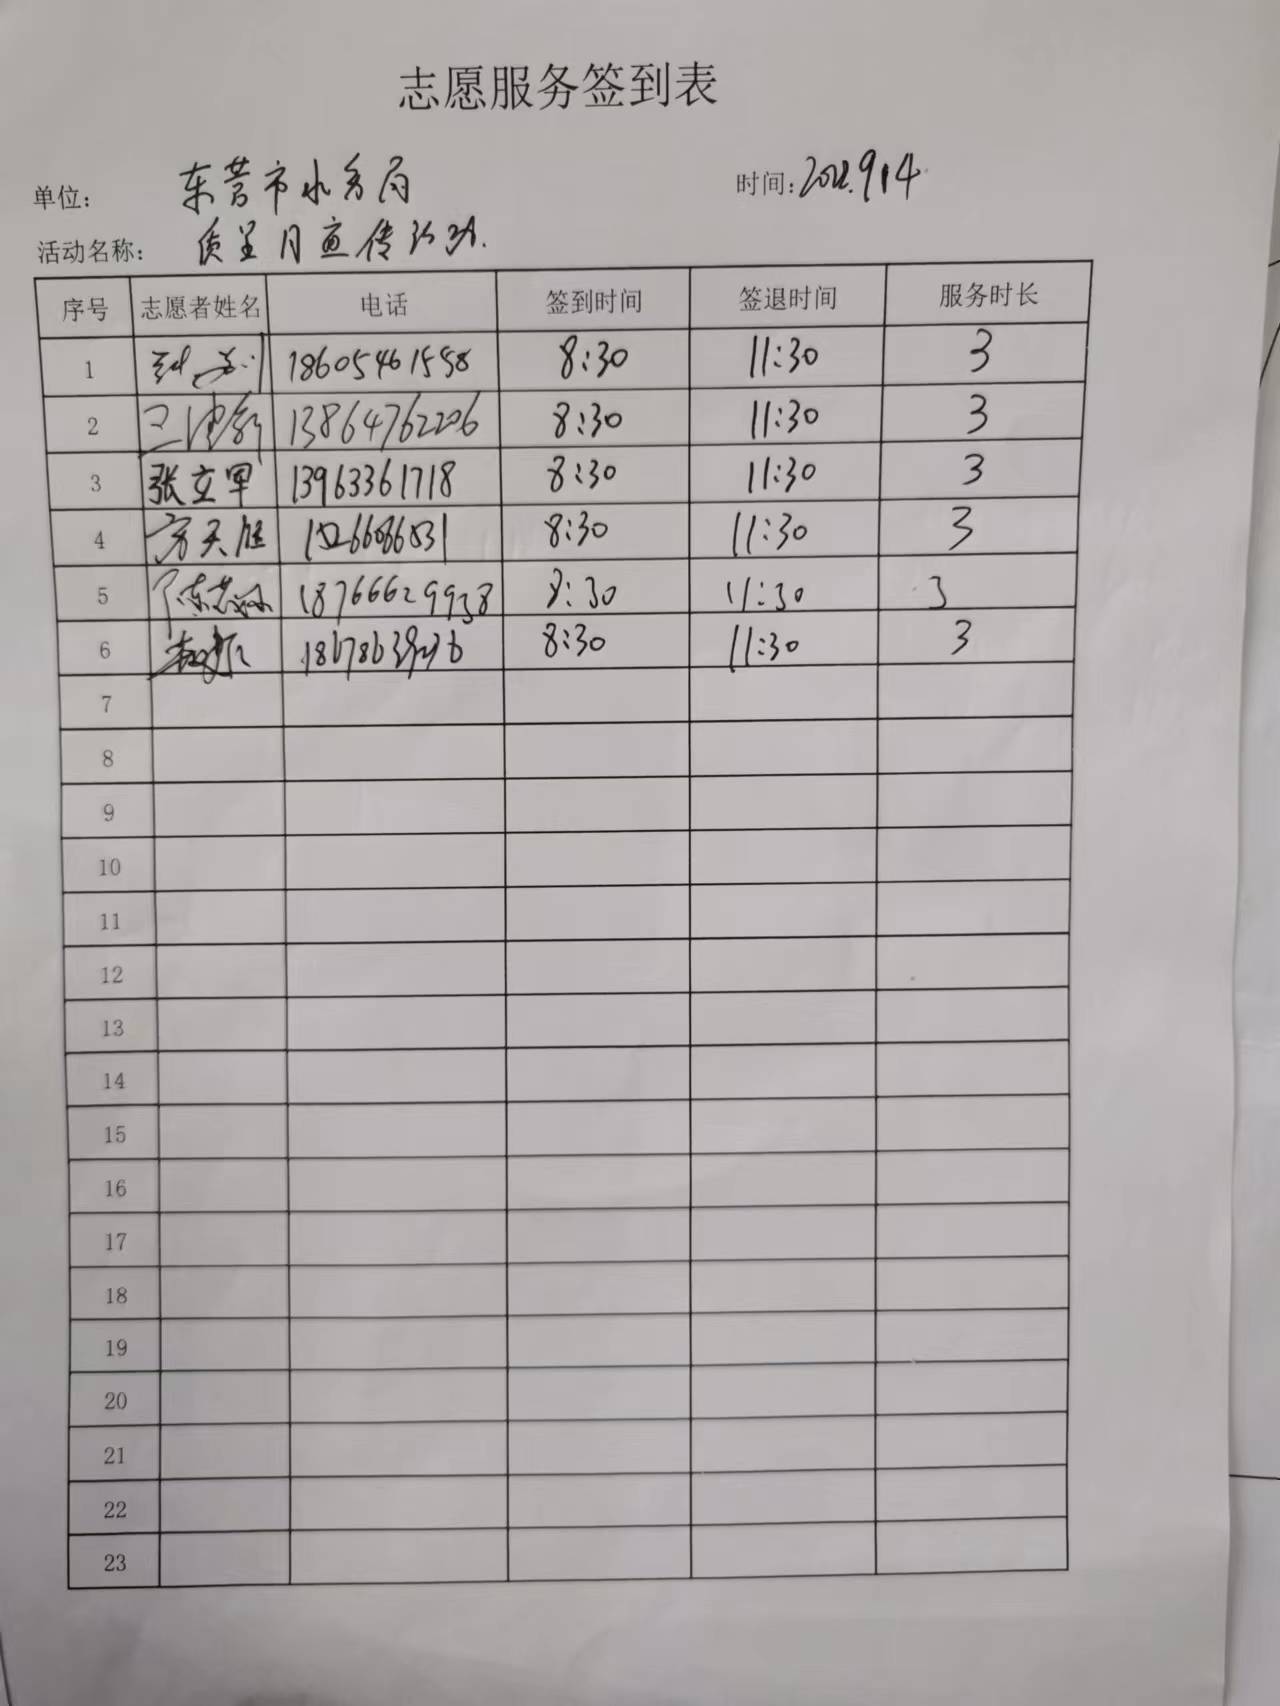 志愿服务签到表
单位： 东营市水务局 时间：
活动名称： 质量月宣传活动.
序号 志愿者姓名 电话 签到时间 签退时间 服务时长
1 18605461558 8:30 11:30 3
2 13864762206 8:30 11:30 3
3 张立军 13963361718 8:30 11:30 3
4 8:30 11:30 3
5 18766629938 8:30 11:30 3
6 8:30 11:30 3
7
8
9
10
11
12
13
14
15
16
17
18
19
20
21
22
23